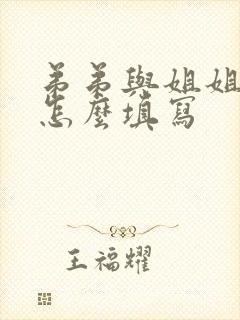 弟弟與姐姐
怎麼填寫
王福耀